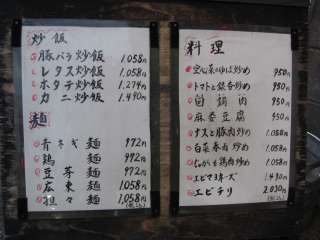 炒飯
豚バラ炒飯 1.058円
レタス炒飯 1.058円
ホタテ炒飯 1.274円
カニ炒飯 1.490円
麺
青ネギ麺 972円
鶏麺 992円
豆芽麺 972円
広東麺 1,058円
担々麺 1,058円
(税込)
料理
空心菜の炒め 950円
トマトと銀杏炒め 950円
白鍋肉 950円
麻婆豆腐 950円
ナスと豚肉炒め 1.058円
白菜春雨炒め 1.058円
鶏肉炒め 1.058円
エビマヨネーズ 1.490円
エビチリ 2.030円
(税込)